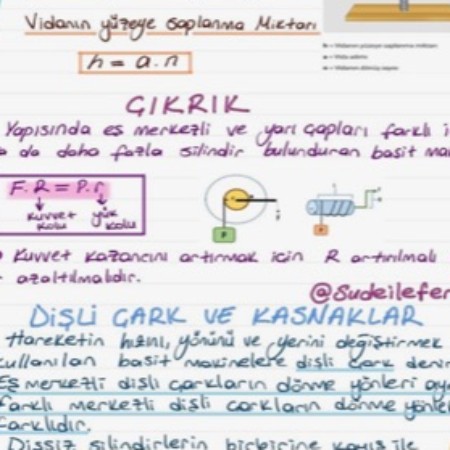 Vidanın yüzeye saplanma Miktarı
h = a.n
h = Vidanın yüzeye saplanma miktarı
a = Vida adımı
n = Vidanın dönüş sayısı
ÇIKRIK
Yapısında eş merkezli ve yarı çapları farklı
da daha fazla silindir bulunduran basit
F.R = P.r
kuvvet kolu
yük kolu
Kuvvet kazancını artırmak için R artırılmalı
azaltılmalıdır.
@Sudeilefer
DİŞLİ ÇARK VE KASNAKLAR
Hareketin hızını, yönünü ve yerini değiştirmek
kullanılan basit makinelere dişli çark denir
Eş merkezli dişli çarkların dönme yönleri
farklı merkezli dişli çarkların dönme
farklıdır.
Dişsiz silindirlerin birbirine kayış ile